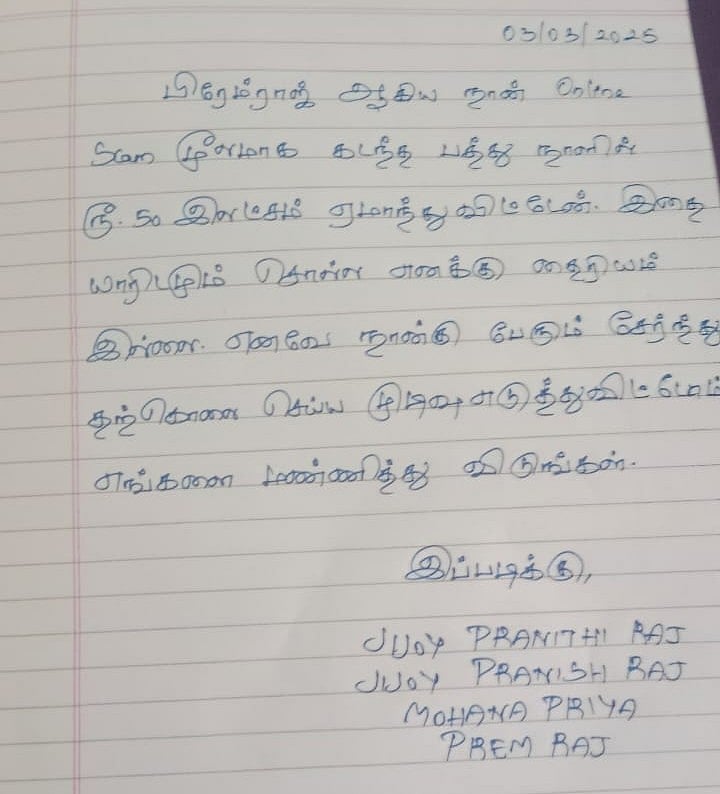 03/03/2025
பிரேம்ராஜ் ஆகிய நான் Online
Scam மூலமாக கடந்த பத்து நாளில்
ரூ. 50 இலட்சம் ஏமாந்துவிட்டேன். இதை
யாரிடமும் சொல்ல எனக்கு தைரியம்
இல்லை. எனவே நான்கு பேரும் சேர்ந்து
தற்கொலை செய்ய முடிவு எடுத்துவிட்டோம்
எங்களை மன்னித்து விடுங்கள்.
இப்படிக்கு,
JIJOY PRANITHI RAJ
JIJOY PRANISH RAJ
MOHANA PRIYA
PREM RAJ